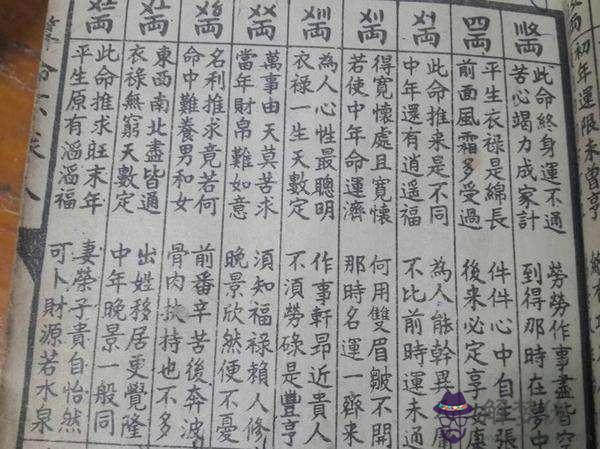 初年運限未曾亨
此命終身運不通 勞勞作事盡皆空
苦心竭力成家計 到得那時在夢中
四両
平生衣祿是綿長 件件心中自主張
前面風霜多受過 後来必定享安康
此命推来是不同 為人能幹異
中年還有逍遥福 不比前時運未通
得寬懷處且寬懷 何用雙眉皺不開
若使中年命運濟 那時名運一齊来
為人心性最聰明 作事軒昻近貴人
衣祿一生天數定 不須勞碌是豐亨
萬事由天莫苦求 須知福祿賴人修
當年財帛難如意 晚景欣然便不憂
名利推求竟若何 前番辛苦後奔波
命中難養男和女 骨肉扶持也不多
東西南北盡皆通 出姓移居更覺隆
衣祿無窮天數定 中年晚景一般同
此命推求旺末年 妻榮子貴自怡然
平生原有滔滔福 可卜財源若水泉